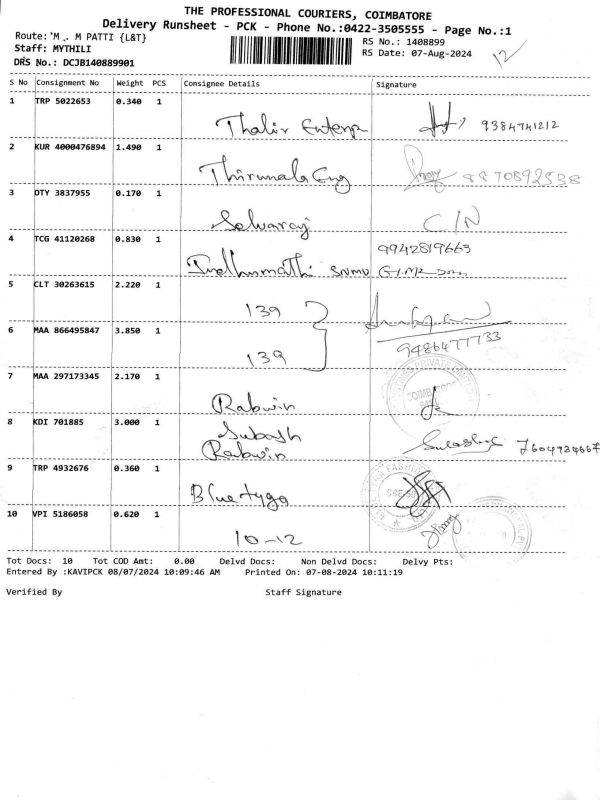 THE PROFESSIONAL COURIERS, COIMBATORE
Delivery Runsheet - PCK - Phone No.:0422-3505555 - Page No.:1
Route: M M PATTI {L&T}
RS No.: 1408899
Staff: MYTHILI
RS Date: 07-Aug-2024
12
DRS No.: DCJB140889901
S No Consignment No Weight PCS Consignee Details Signature
1 TRP 5022653 0.340 1
Thalir Enterp 9384741212
2 KUR 4000476894 1.490 1
Thirumala Eng 8870892538
3 DTY 3837955 0.170 1
Selvaraj C/N
4 TCG 41120268 0.830 1
9942819663
Indhumathi SNMV
5 CLT 30263615 2.220 1
139
6 MAA 866495847 3.850 1
9486477733
139
7 MAA 297173345 2.170 1
COIMBATORE
Rabwin
8 KDI 701885 3.000 1
Subash
Rabwin 7604934667
9 TRP 4932676 0.360 1
FASHION
Bluetyga
10 VPI 5186058 0.620 1
10-12
Tot Docs: 10 Tot COD Amt: 0.00 Delvd Docs: Non Delvd Docs: Delvy Pts:
Entered By :KAVIPCK 08/07/2024 10:09:46 AM Printed On: 07-08-2024 10:11:19
Verified By Staff Signature